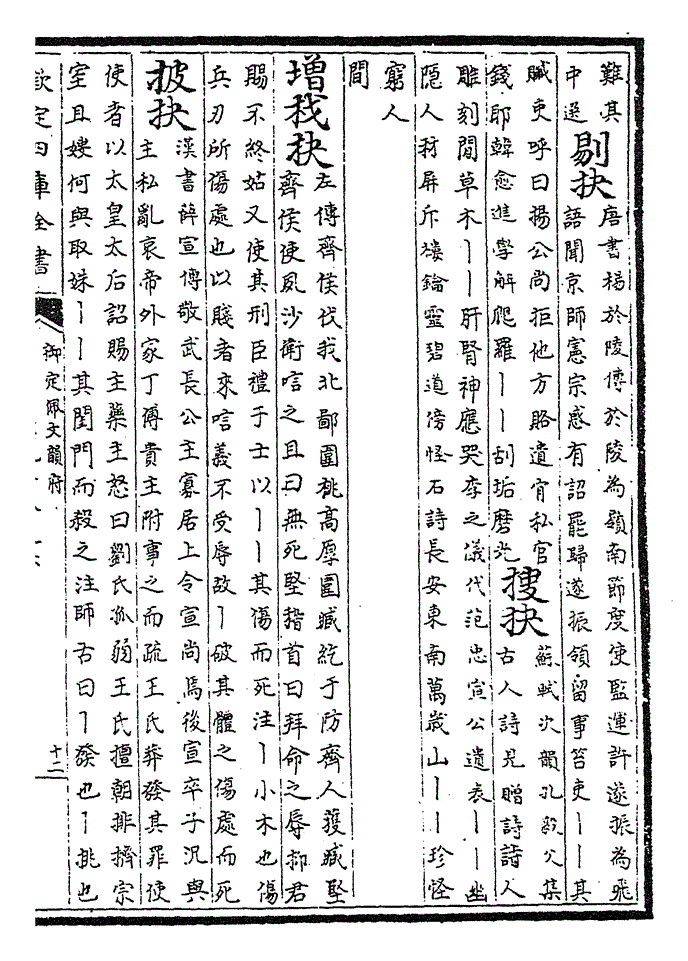 難其
中選
剔抉
唐書楊於陵傳於陵為嶺南節度使監運許遂振為飛
語聞京師憲宗惑有詔罷歸遂振領留事笞吏丨丨其
贓吏呼曰楊公尚拒他方賂遺肯私官
錢耶韓愈進學解爬羅丨丨刮垢磨光
搜抉
蘇軾次韻孔毅父集
古人詩見贈詩詩人
雕刻閒草木丨丨肝腎神應哭李之儀代范忠宣公遺表丨丨幽
隱人材屏斥樓鑰靈碧道傍怪石詩長安東南萬歲山丨丨珍怪
窮人
間
增杙抉
左傳齊侯伐我北鄙圍桃高厚圍臧紇于防齊人獲臧堅
齊侯使夙沙衛唁之且曰無死堅稽首曰拜命之辱抑君
賜不終姑又使其刑臣禮于士以丨丨其傷而死注丨小木也傷
兵刃所傷處也以賤者來唁義不受辱故丨破其體之傷處而死
披抉
漢書薛宣傳敬武長公主寡居上令宣尚焉後宣卒子況與
主私亂哀帝外家丁傅貴主附事之而疏王氏莽發其罪使
使者以太皇太后詔賜主藥主怒曰劉氏孤弱王氏擅朝排擠宗
室且嫂何與取妹丨丨其閨門而殺之注師古曰丨發也丨挑也
欽定四庫全書
御定佩文韻府
十二